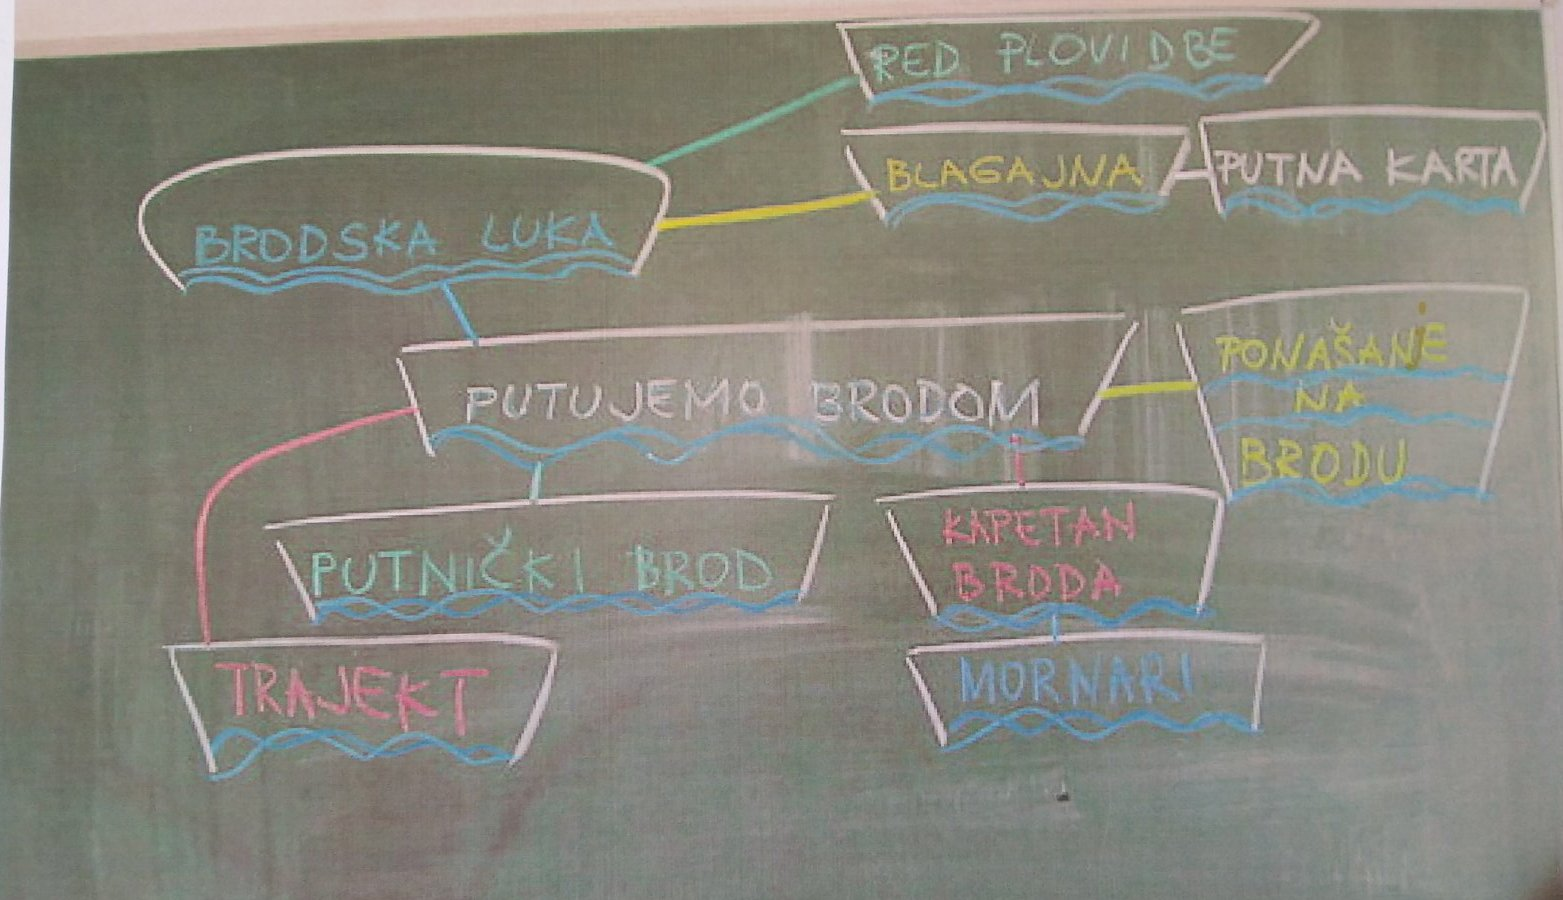 RED PLOVIDBE
BLAGAJNA
PUTNA KARTA
BRODSKA LUKA
PUTUJEMO BRODOM
PONAŠANJE
NA
BRODU
PUTNIČKI BROD
KAPETAN
BRODA
TRAJEKT
MORNARI